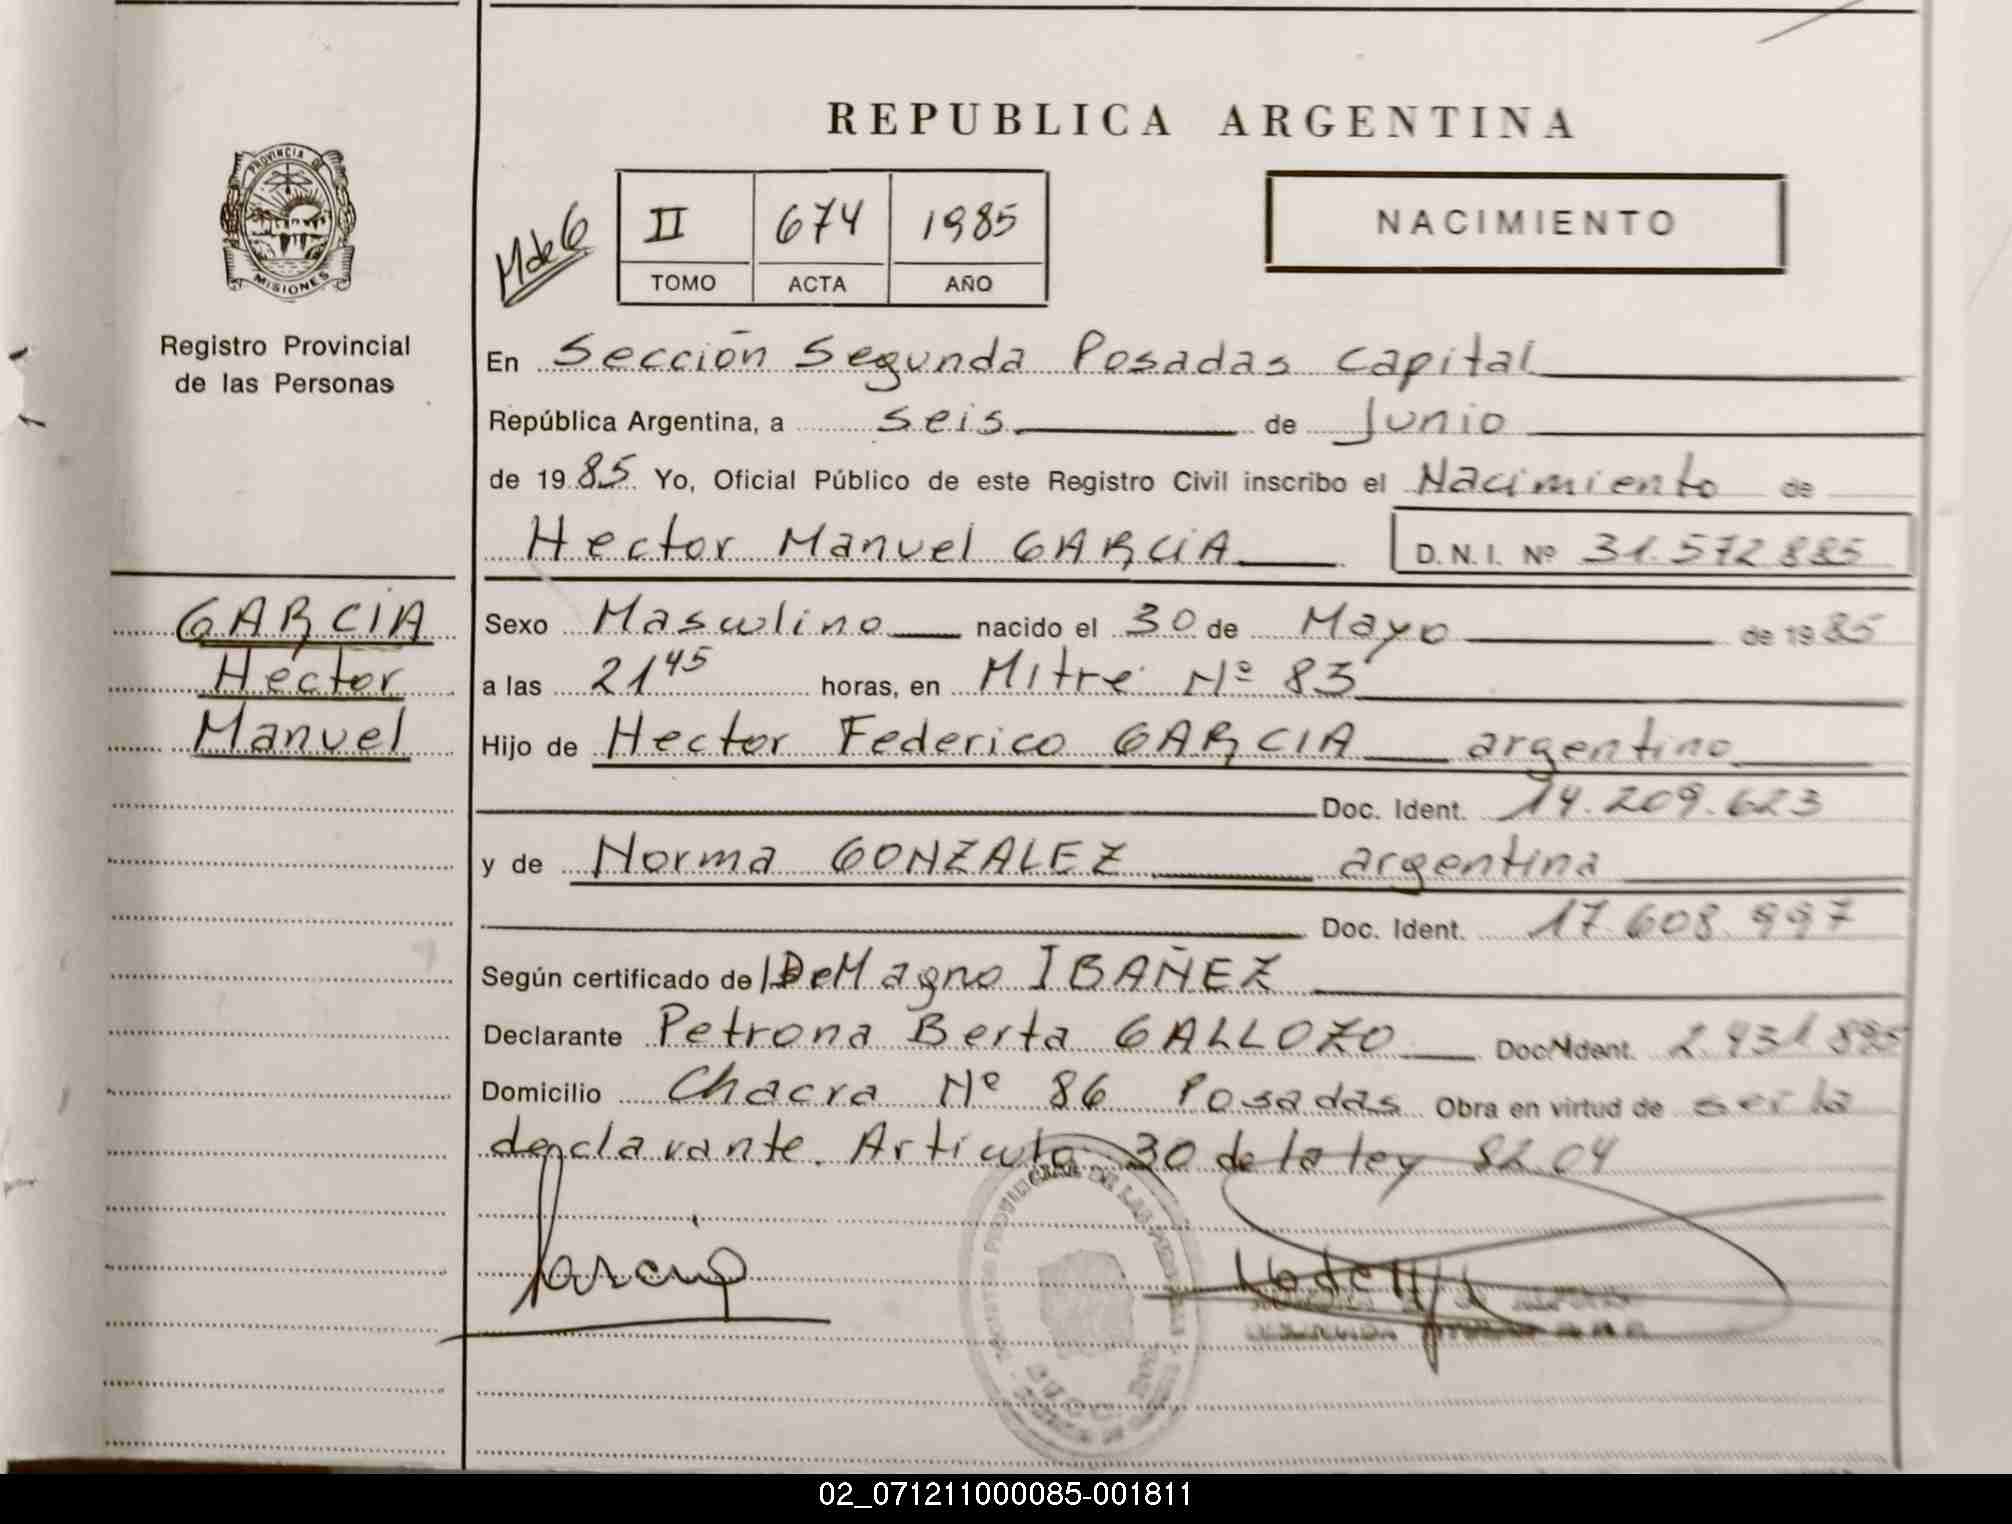 REPUBLICA ARGENTINA
PROVINCIA DE
MISIONES
Registro Provincial
de las Personas
M de 6
II 674 1985
TOMO ACTA AÑO
NACIMIENTO
En Sección Segunda Posadas Capital
República Argentina, a seis de Junio
de 1985 Yo, Oficial Público de este Registro Civil inscribo el Nacimiento de
Hector Manuel GARCIA D.N.I. Nº 31.572885
GARCIA
Hector
Manuel
Sexo Masculino nacido el 30 de Mayo de 1985
a las 21 45 horas, en Mitre Nº 83
Hijo de Hector Federico GARCIA argentino
Doc. Ident. 14.209.623
y de Norma GONZALEZ argentina
Doc. Ident. 17.608.997
Según certificado de Magno IBAÑEZ
Declarante Petrona Berta GALLOZO Doc. Ident. 2.431 895
Domicilio Chacra Nº 86 Posadas Obra en virtud de ser la
declarante. Articulo 30 de la ley 8204
02_071211000085-001811